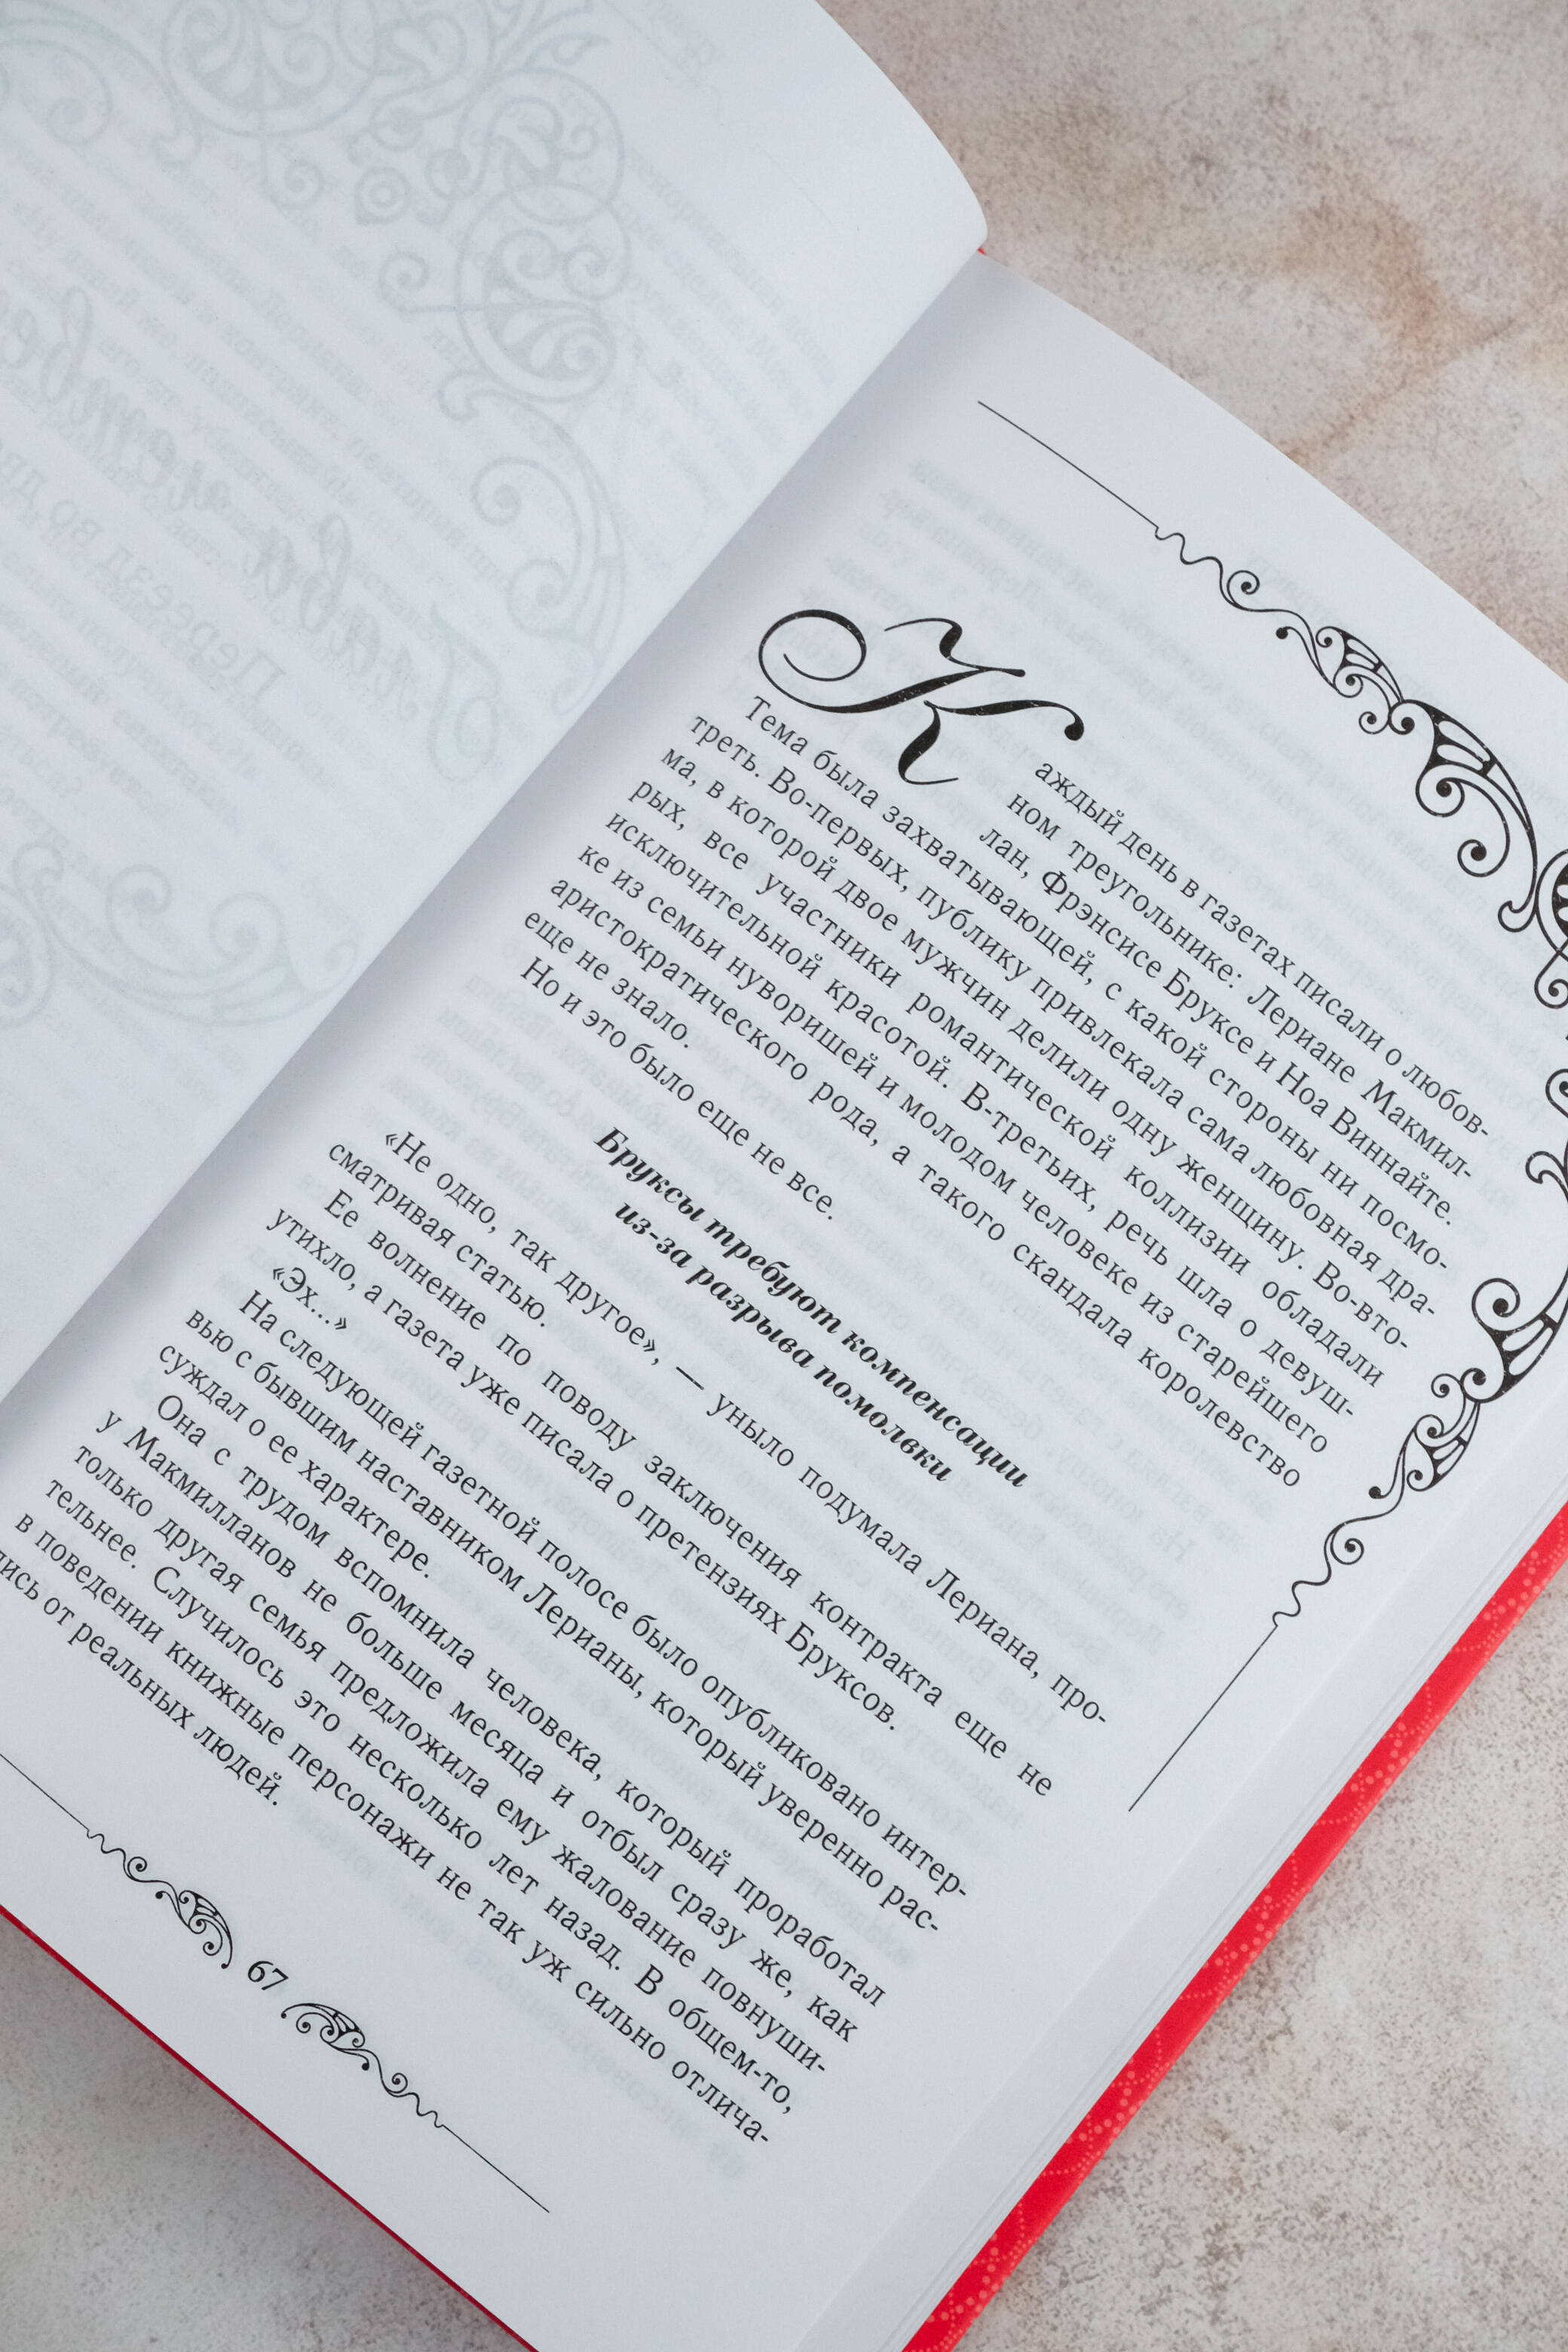 Каждый день в газетах писали о любов-
ном треугольнике: Лериане Макмил-
лан, Фрэнсисе Бруксе и Ноа Виннайте.
Тема была захватывающей, с какой стороны ни посмо-
треть. Во-первых, публику привлекала сама любовная дра-
ма, в которой двое мужчин делили одну женщину. Во-вто-
рых, все участники романтической коллизии обладали
исключительной красотой. В-третьих, речь шла о девуш-
ке из семьи нуворишей и молодом человеке из старейшего
аристократического рода, а такого скандала королевство
еще не знало.
Но и это было еще не все.
Бруксы требуют компенсации
из-за разрыва помолвки
«Не одно, так другое», — уныло подумала Лериана, про-
сматривая статью.
Ее волнение по поводу заключения контракта еще не
утихло, а газета уже писала о претензиях Бруксов.
«Эх...»
На следующей газетной полосе было опубликовано интер-
вью с бывшим наставником Лерианы, который уверенно рас-
суждал о ее характере.
Она с трудом вспомнила человека, который проработал
у Макмилланов не больше месяца и отбыл сразу же, как
только другая семья предложила ему жалование повнуши-
тельнее. Случилось это несколько лет назад. В общем-то,
в поведении книжные персонажи не так уж сильно отлича-
лись от реальных людей.
67